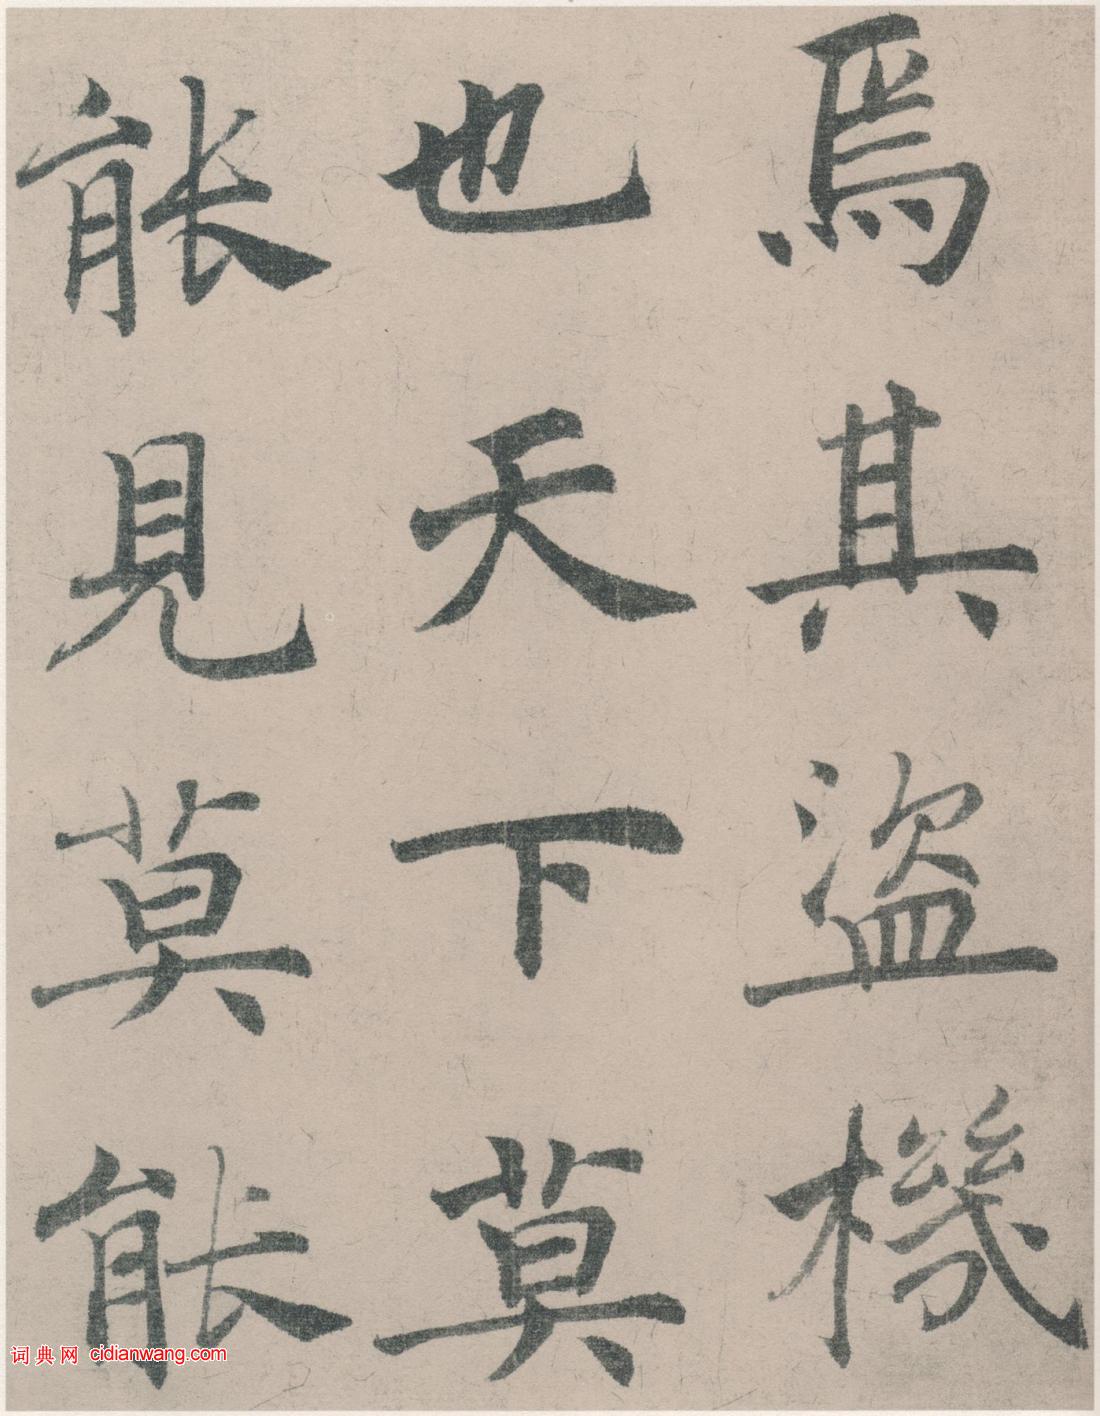 焉其盜機
也天下莫
能見莫能
词典网 cidianwang.com